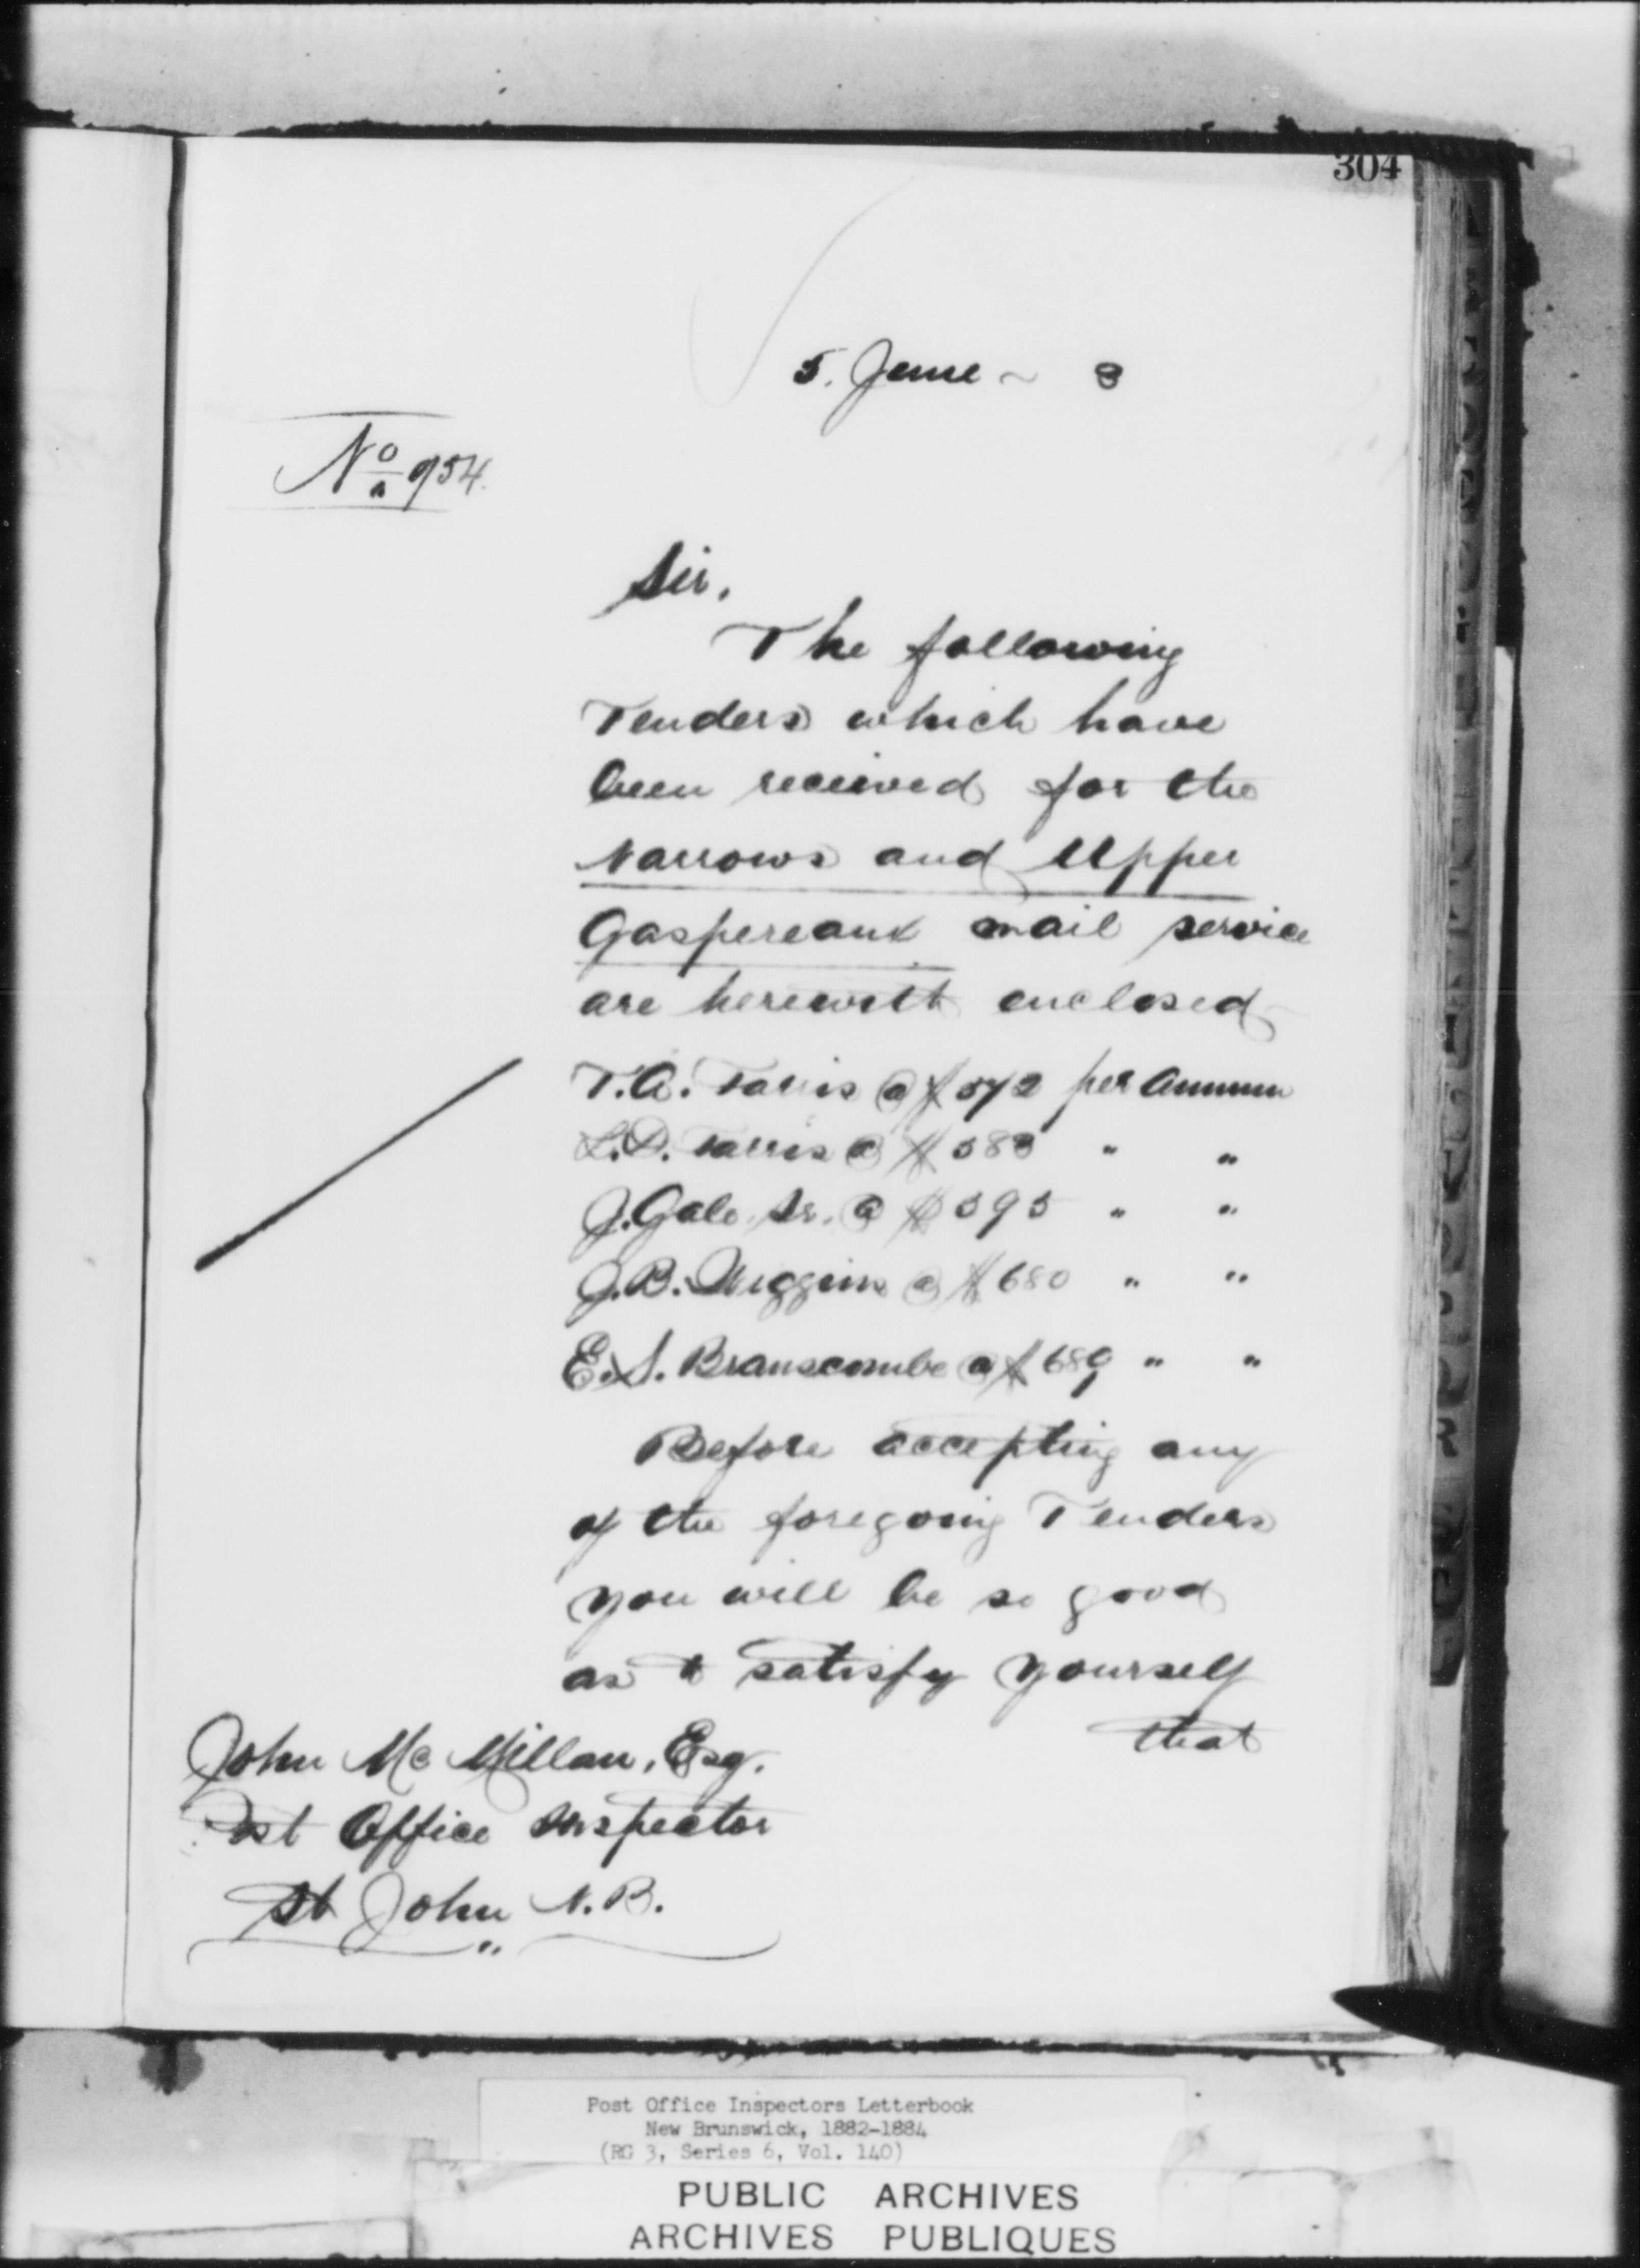 304
5. June ~ 3
No a 954.
Sir,
The following
Tenders which have
been received for the
Narrows and Upper
Gaspereaux mail service
are herewith enclosed
T.A. Farris @ $572 per Annum
L.P. Farris @ $583 " "
J. Gale Sr. @ $595 " "
J.B. Wiggins @ $680 " "
E.S. Branscombe @ $689 " "
Before accepting any
of the foregoing Tenders
you will be so good
as to satisfy yourself
that
John McMillan, Esq.
Post Office Inspector
St John N.B.
Post Office Inspectors Letterbook
New Brunswick, 1882-1884
(RG 3, Series 6, Vol. 140)
PUBLIC ARCHIVES
ARCHIVES PUBLIQUES